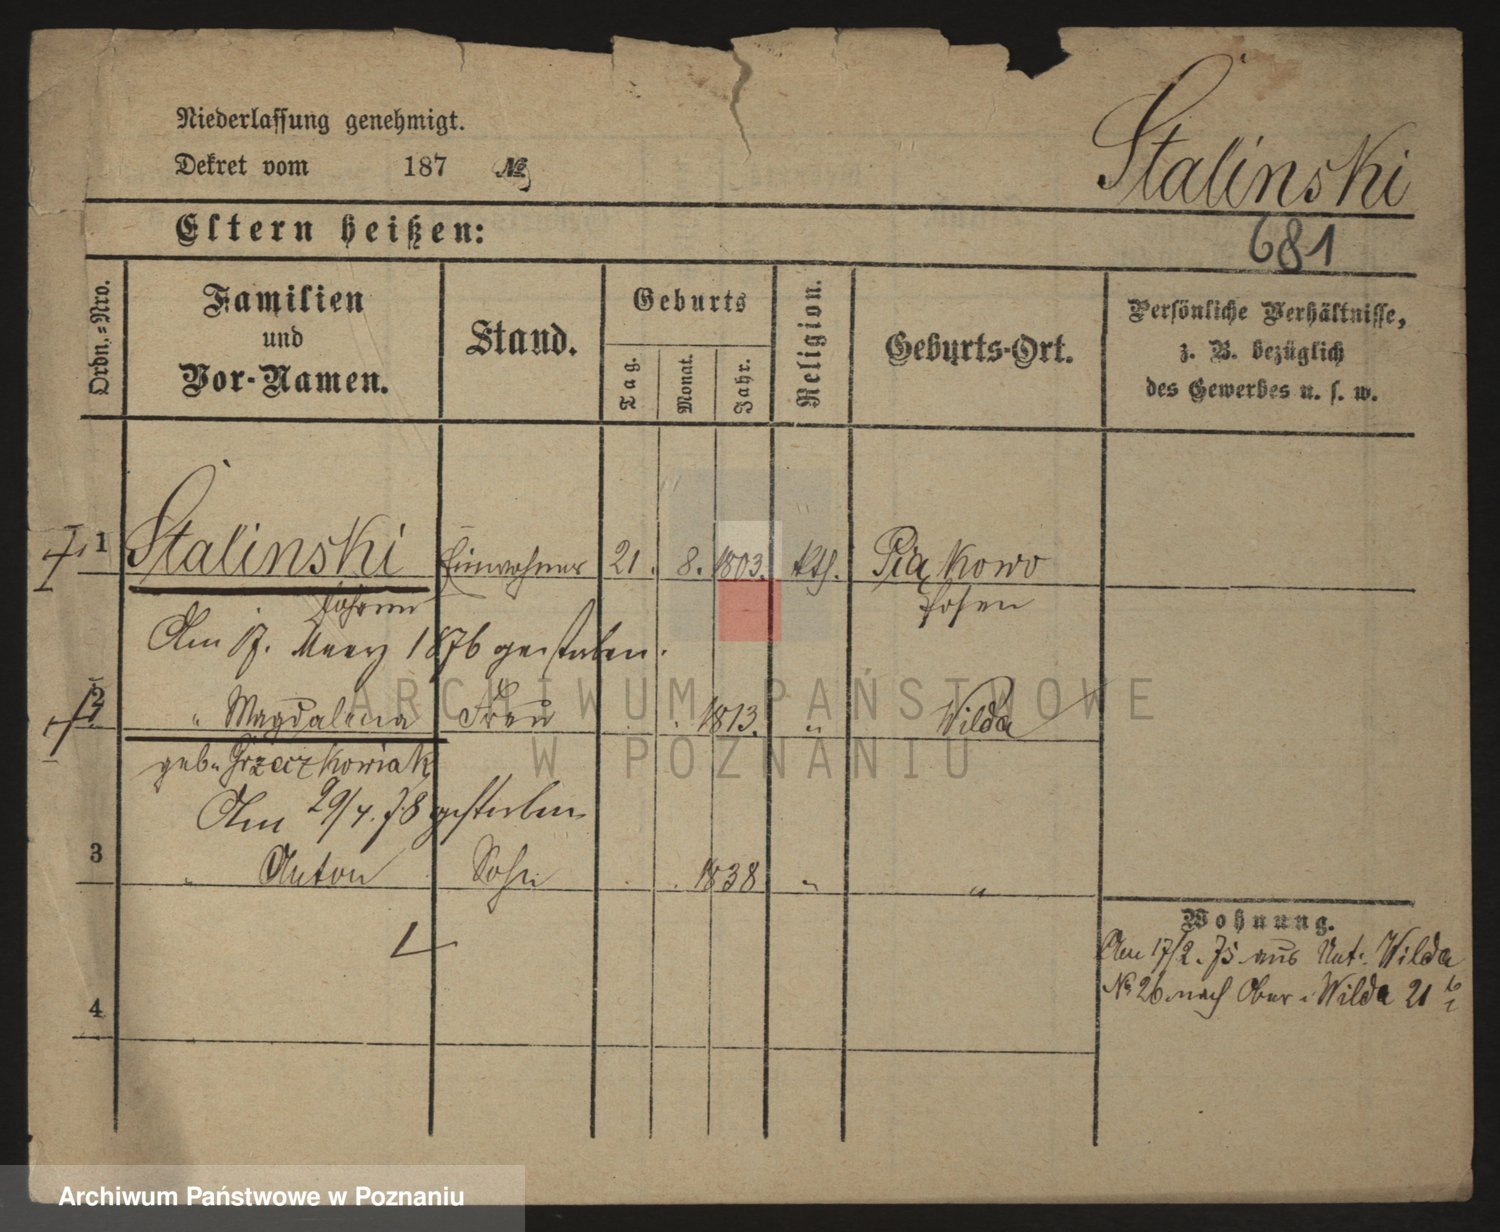 Niederlassung genehmigt.
Dekret vom 187 №
Stalinski
681
Eltern heißen:
Ordn.-Nro.
Familien
und
Vor-Namen.
Stand.
Geburts
Tag.
Monat.
Jahr.
Religion.
Geburts-Ort.
Persönliche Verhältnisse,
z. B. bezüglich
des Gewerbes u. s. w.
1 Stalinski Einwohner 21. 8. 1803. kth. Piątkowo
Posen
Am 17. März 1876 gestorben.
2 " Magdalena Frau 1813. " Wilda
geb. Grzeczkowiak
Am 29/4. 78 gestorben
3 " Anton Sohn 1838 " "
Wohnung.
Am 17/2. 75 aus Unt. Wilda
№ 26 nach Ober-Wilda 21
4
ARCHIWUM PAŃSTWOWE
W POZNANIU
Archiwum Państwowe w Poznaniu